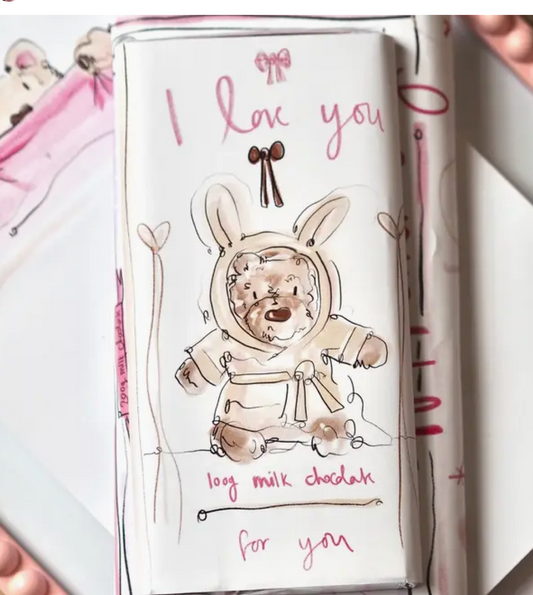 I love you
100g milk chocolate
for you
200g milk chocolate